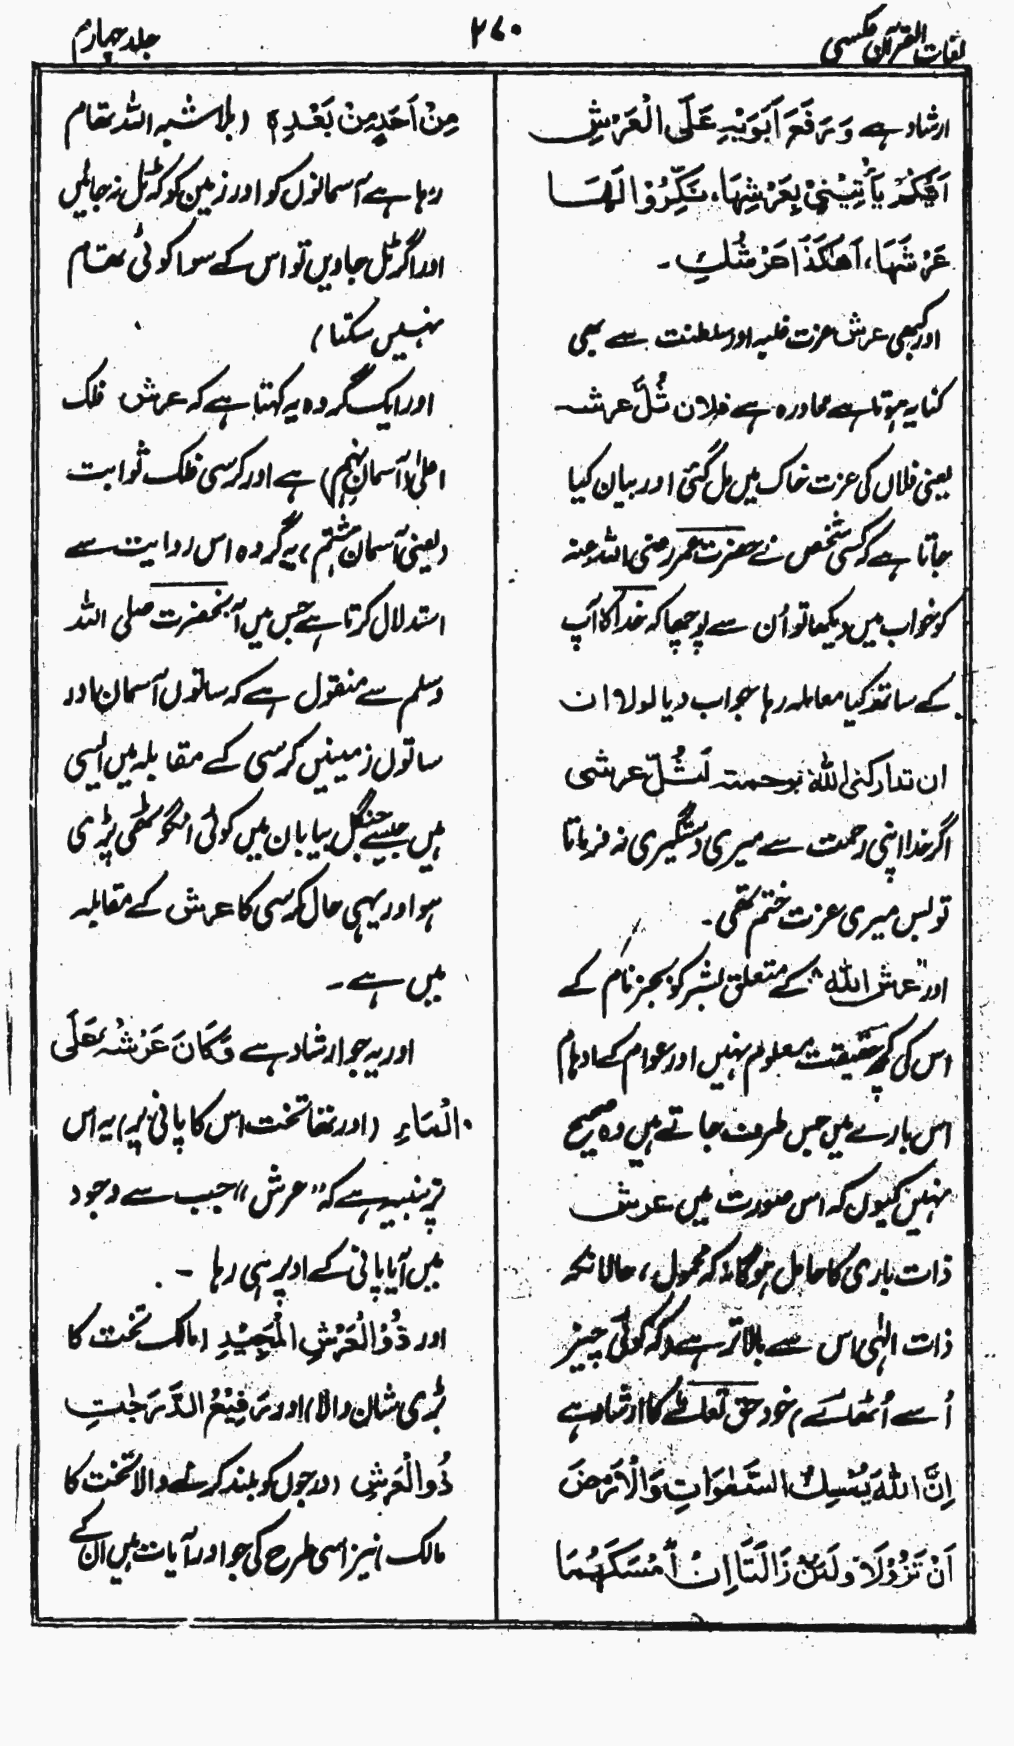 لغات القرآن عکسی
۲۷۰
جلد چہارم
ارشاد ہے وَرَفَعَ أَبَوَيْهِ عَلَى الْعَرْشِ
أَيُّكُمْ يَأْتِيْنِيْ بِعَرْشِهَا، نَكِّرُوْا لَهَا
عَرْشَهَا، أَهٰكَذَا عَرْشُكِ۔
اور کبھی عرش عزت غلبہ اور سلطنت سے بھی
کنایہ ہوتا ہے محاورہ ہے فلان ثُلَّ عرشہ
یعنی فلاں کی عزت خاک میں مل گئی اور بیان کیا
جاتا ہے کہ کسی شخص نے حضرت عمر رضی اللہ عنہ
کو خواب میں دیکھا تو اُن سے پوچھا کہ خدا کا آپ
کے ساتھ کیا معاملہ رہا جواب دیا لولا ان
ان تدارکنی اللہ برحمتہ لَثُلّ عرشی
اگر خدا اپنی رحمت سے میری دستگیری نہ فرماتا
تو بس میری عزت ختم تھی۔
اور "عرش اللہ" کے متعلق بشر کو بجز نام کے
اس کی کچھ حقیقت معلوم نہیں اور عوام کے اوہام
اس بارے میں جس طرف جاتے ہیں وہ صحیح
نہیں کیوں کہ اس صورت میں عرش
ذات باری کا حامل ہوگا نہ کہ محمول، حالانکہ
ذات الٰہی اس سے بالاتر ہے کہ کوئی چیز
اُسے اُٹھائے، خود حق تعالےٰ کا ارشاد ہے
اِنَّ اللّٰهَ يُمْسِكُ السَّمٰوَاتِ وَالْاَرْضَ
اَنْ تَزُوْلَا وَلَئِنْ زَالَتَا اِنْ اَمْسَكَهُمَا
مِنْ اَحَدٍ مِنْ بَعْدِهٖ (بلاشبہ اللہ تھام
رہا ہے آسمانوں کو اور زمین کو کہ ٹل نہ جائیں
اور اگر ٹل جاویں تو اس کے سوا کوئی تھام
نہیں سکتا)
اور ایک گروہ یہ کہتا ہے کہ عرش فلک
اعلیٰ (آسمان نہم) ہے اور کرسی فلک ثوابت
(یعنی آسمان ہشتم)، یہ گروہ اس روایت سے
استدلال کرتا ہے جس میں آنحضرت صلی اللہ
وسلم سے منقول ہے کہ ساتوں آسمان اور
ساتوں زمینیں کرسی کے مقابلہ میں ایسی
ہیں جیسے جنگل بیابان میں کوئی انگوٹھی پڑی
ہو اور یہی حال کرسی کا عرش کے مقابلہ
میں ہے۔
اور یہ جو ارشاد ہے وَكَانَ عَرْشُهُ عَلَى
الْمَاءِ (اور تھا تخت اس کا پانی پر) یہ اس
پر تنبیہ ہے کہ "عرش" جب سے وجود
میں آیا پانی کے اوپر ہی رہا۔
اور ذُوالْعَرْشِ الْمَجِيْدِ (مالک تخت کا
بڑی شان والا) اور رَفِيْعُ الدَّرَجٰتِ
ذُوالْعَرْشِ (درجوں کو بلند کرنے والا تخت کا
مالک) نیز اسی طرح کی جو اور آیات ہیں ان کے